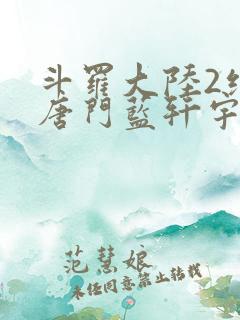 斗羅大陸2
唐門藍軒宇
范慧娘
未经同意禁止转载